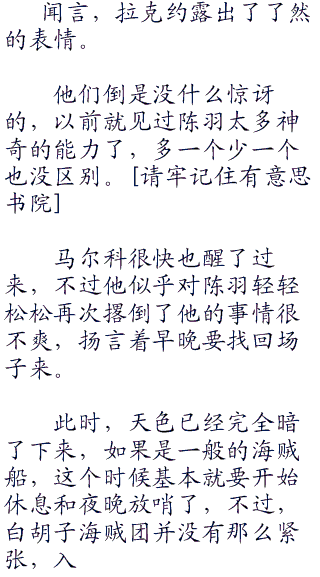 闻言，拉克约露出了了然
的表情。
他们倒是没什么惊讶
的，以前就见过陈羽太多神
奇的能力了，多一个少一个
也没区别。[请牢记住有意思
书院]
马尔科很快也醒了过
来，不过他似乎对陈羽轻轻
松松再次撂倒了他的事情很
不爽，扬言着早晚要找回场
子来。
此时，天色已经完全暗
了下来，如果是一般的海贼
船，这个时候基本就要开始
休息和夜晚放哨了，不过，
白胡子海贼团并没有那么紧
张，入